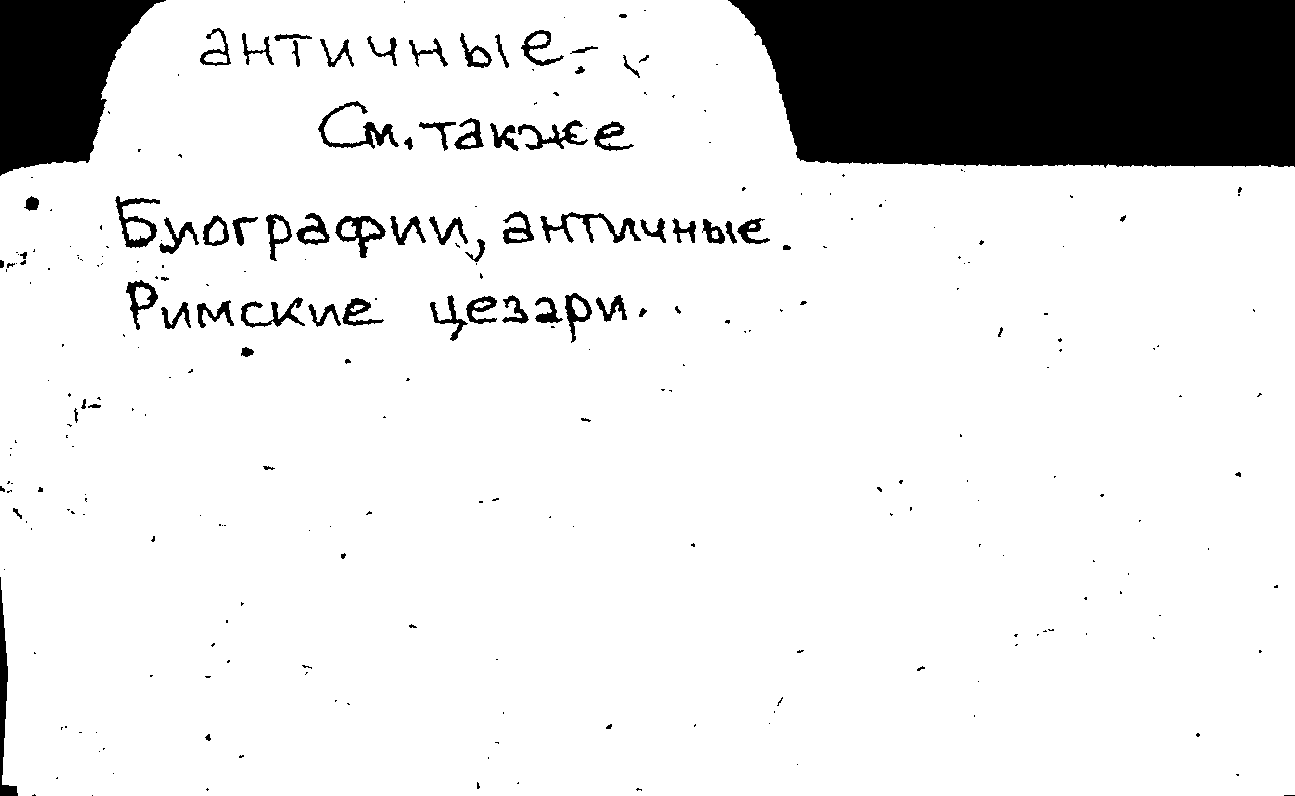 античные.
См. также
Биографии, античные.
Римские цезари.